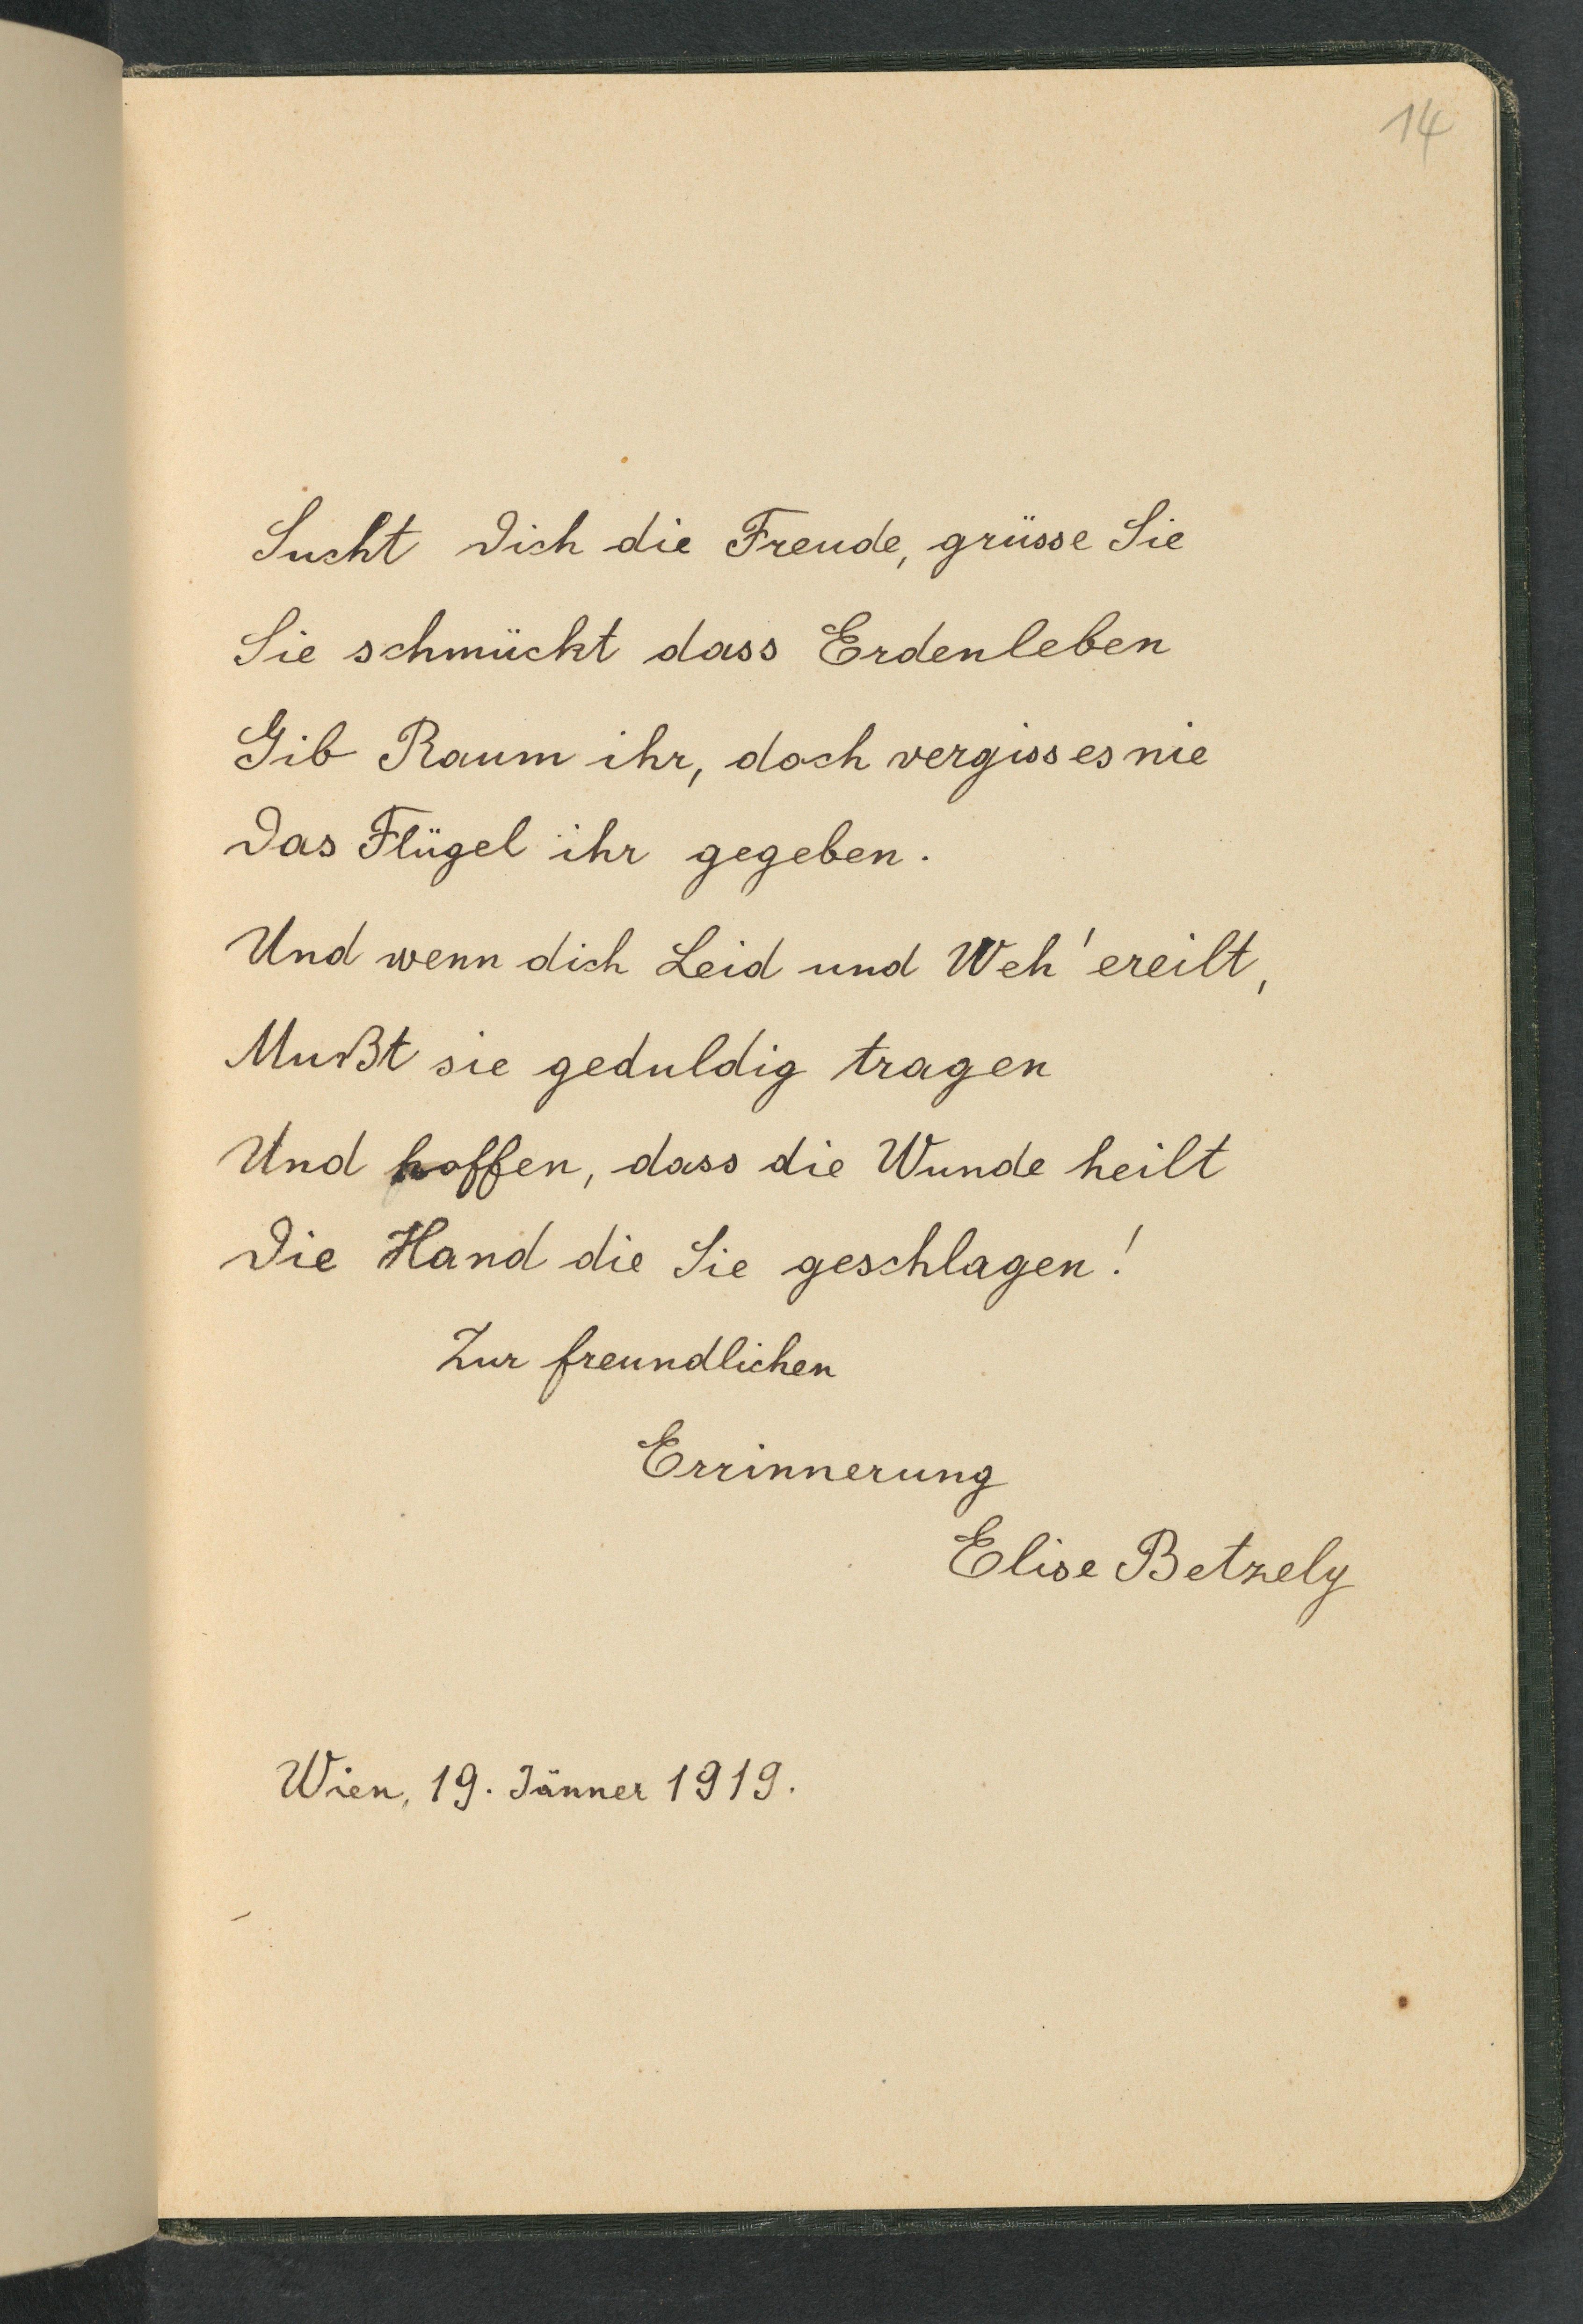 14
Sucht Dich die Freude, grüsse Sie
Sie schmückt dass Erdenleben
Gib Raum ihr, doch vergiss es nie
Das Flügel ihr gegeben.
Und wenn dich Leid und Weh' ereilt,
Mußt sie geduldig tragen
Und hoffen, dass die Wunde heilt
Die Hand die Sie geschlagen!
Zur freundlichen
Errinnerung
Elise Betzely
Wien, 19. Jänner 1919.